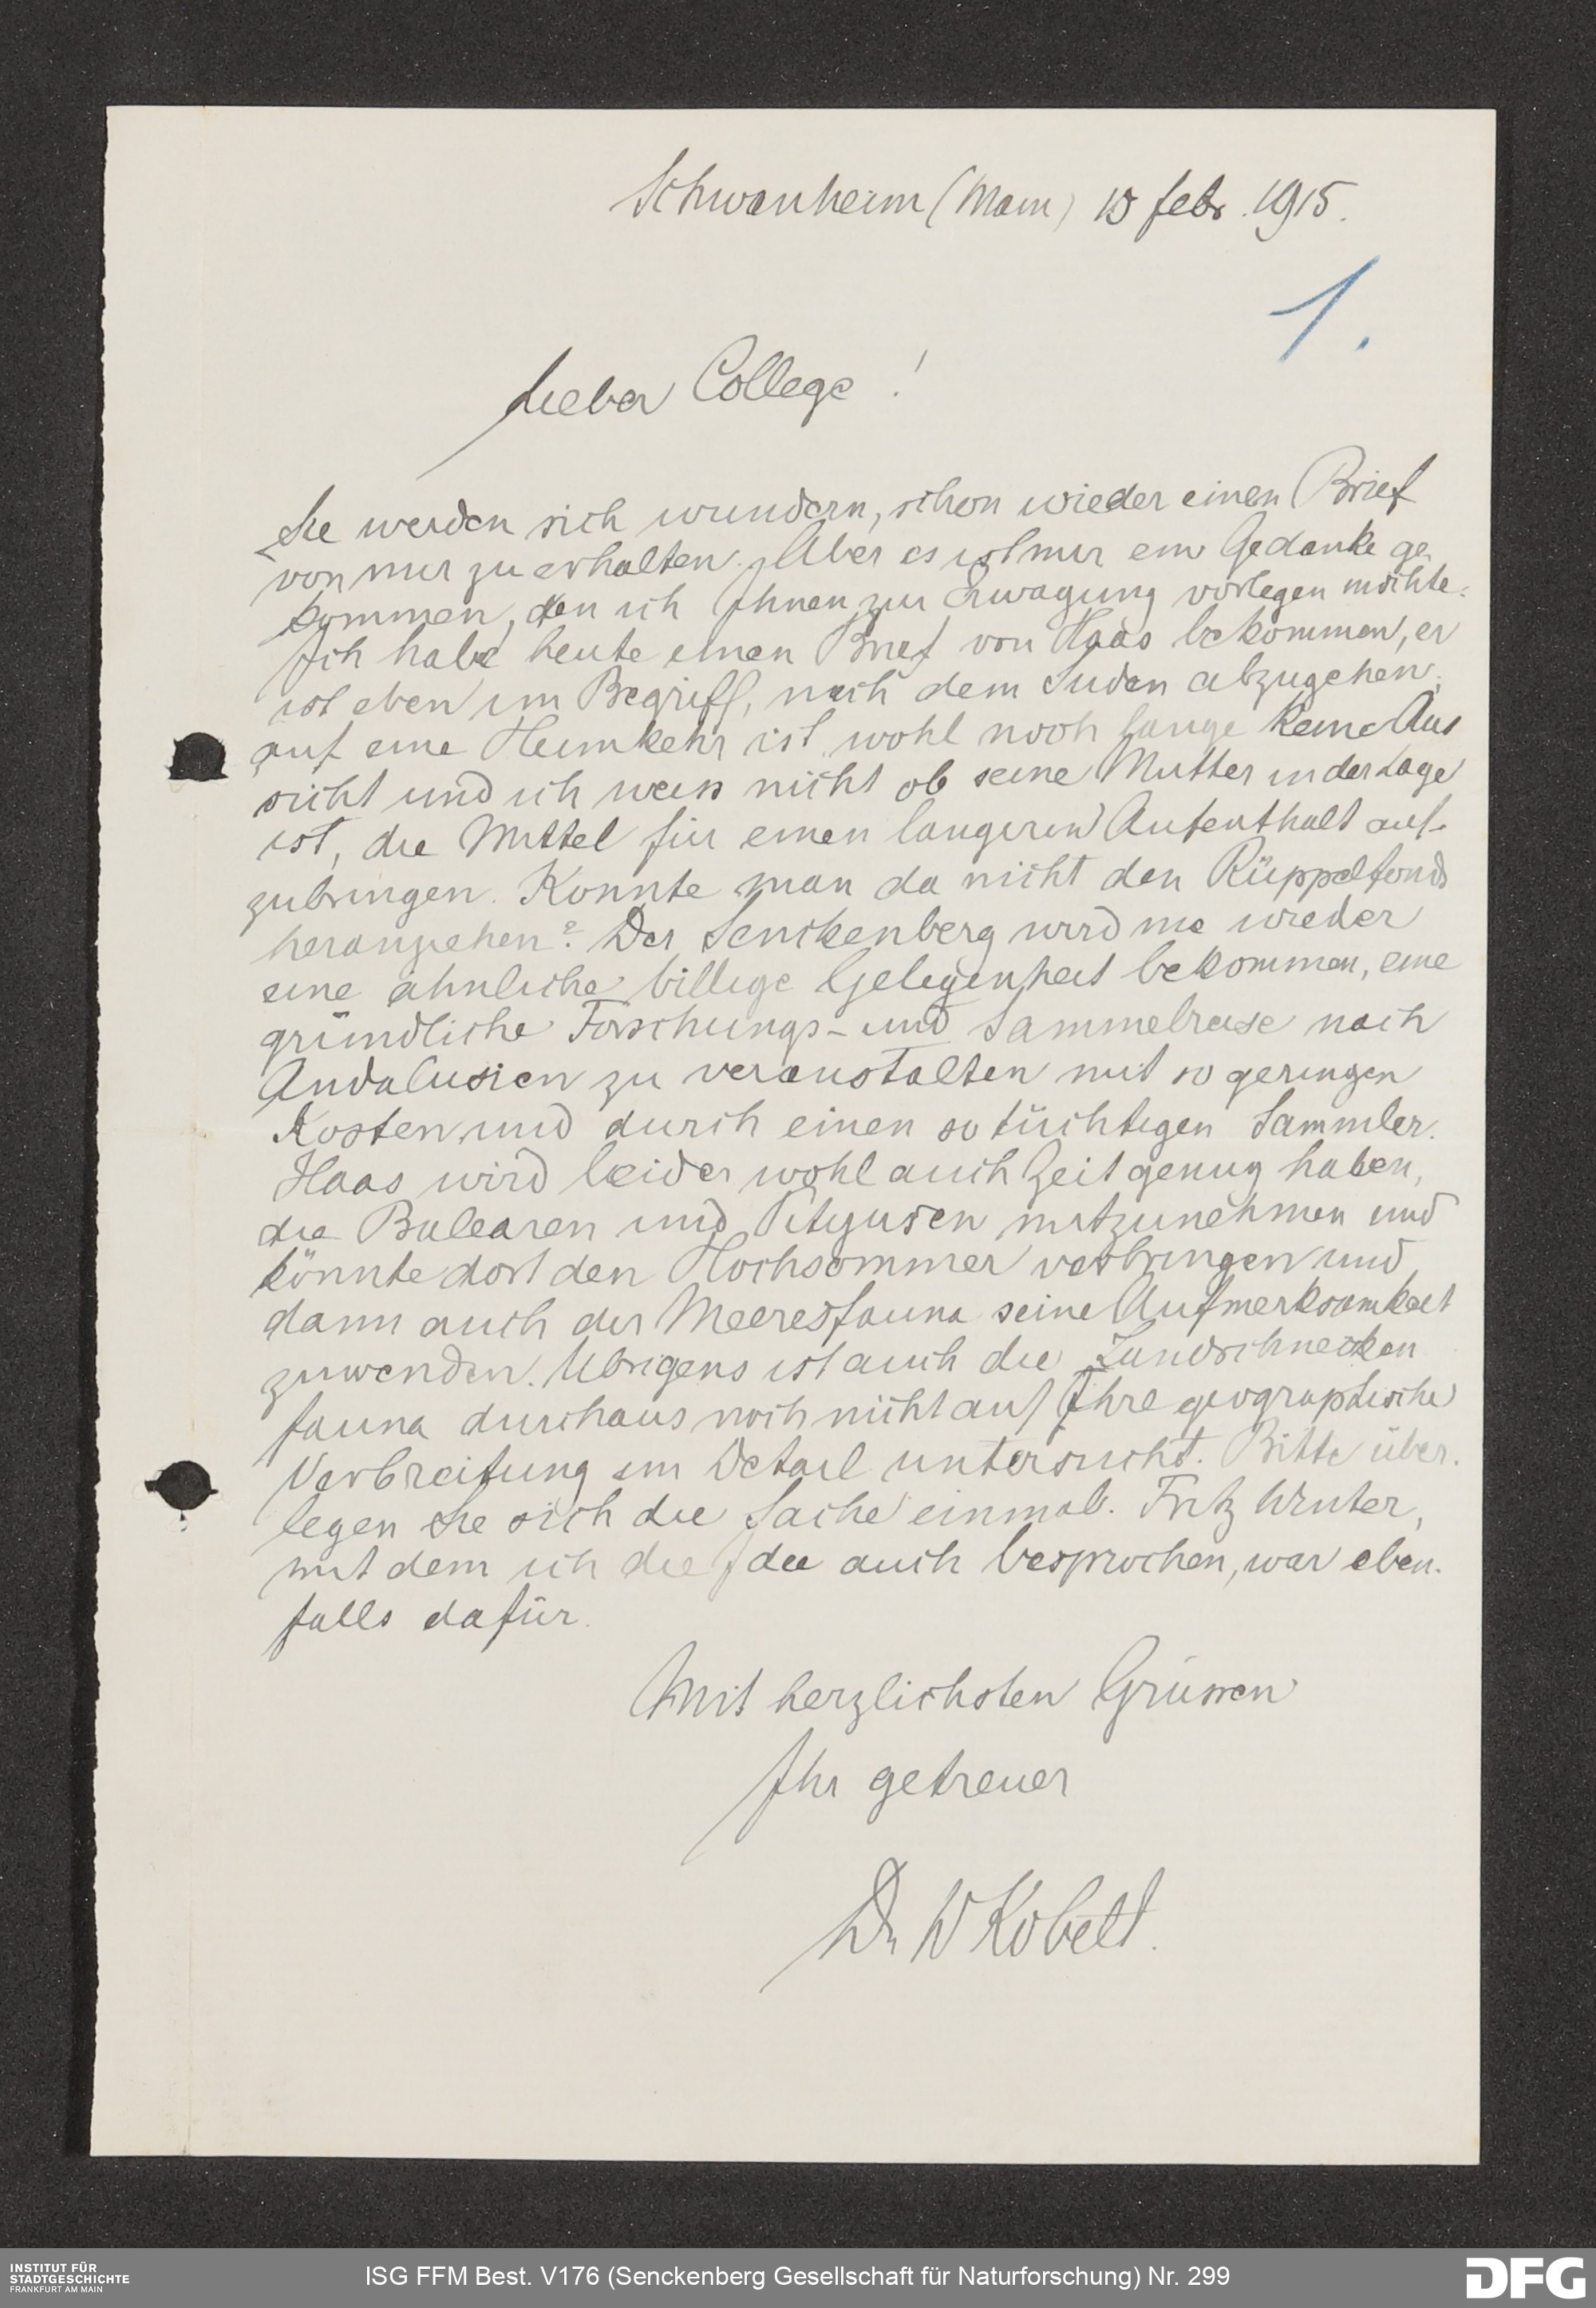 Schwanheim (Main) 15 febr. 1915.
1.
Lieber College!
Sie werden sich wundern, schon wieder einen Brief
von mir zu erhalten. Aber es ist mir ein Gedanke ge
kommen, den ich Ihnen zur Erwagung vorlegen möchte.
Ich habe heute einen Brief von Haas bekommen, er
ist eben im Begriff, nach dem Süden abzugehen,
auf eine Heimkehr ist wohl noch lange keine Aus
sicht und ich weiss nicht ob seine Mutter in der Lage
ist, die Mittel für einen langeren Aufenthalt auf-
zubringen. Konnte man da nicht den Rüppelfonds
heranziehen? Der Senckenberg wird nie wieder
eine ähnliche billige Gelegenheit bekommen, eine
gründliche Forschungs- und Sammelreise nach
Andalusien zu veranstalten mit so geringen
Kosten und durch einen so tüchtigen Sammler.
Haas wird leider wohl auch Zeit genug haben,
die Balearen und Pityusen mitzunehmen und
könnte dort den Hochsommer verbringen und
dann auch der Meeresfauna seine Aufmerksamkeit
zuwenden. Übrigens ist auch die Landschnecken
fauna durchaus noch nicht auf Ihre geographische
Verbreitung im Detail untersucht. Bitte über-
legen Sie sich die Sache einmal. Fritz Winter,
mit dem ich die Idee auch besprochen, war eben-
falls dafür.
Mit herzlichsten Grüssen
Ihr getreuer
Dr W Kobelt.
INSTITUT FÜR
STADTGESCHICHTE
FRANKFURT AM MAIN
ISG FFM Best. V176 (Senckenberg Gesellschaft für Naturforschung) Nr. 299
DFG